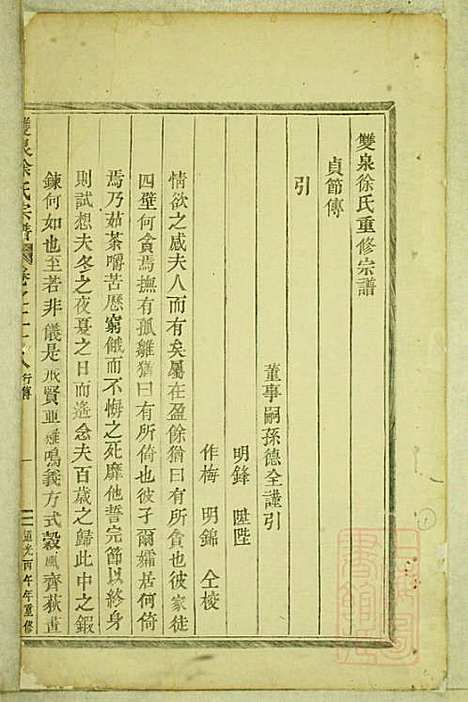 雙泉徐氏重修宗譜
貞節傳
引
董事嗣孫德全謹引
明鋒 陞陛
作梅 明錦 仝梭
情欲之感夫人而有矣屬在盈餘猶曰有所貪也彼家徒
四壁何貪焉撫有孤雛猶曰有所倚也彼子爾孀居何倚
焉乃茹荼嚼苦歷窮餓而不悔之死靡他誓完節以終身
則試想夫冬之夜夏之日而遙念夫百歲之歸此中之鍜
鍊何如也至若非儀是 賢 鳴義方式穀 齊荻畫
雙泉徐氏宗譜 卷之 行傳
道光丙午年重修